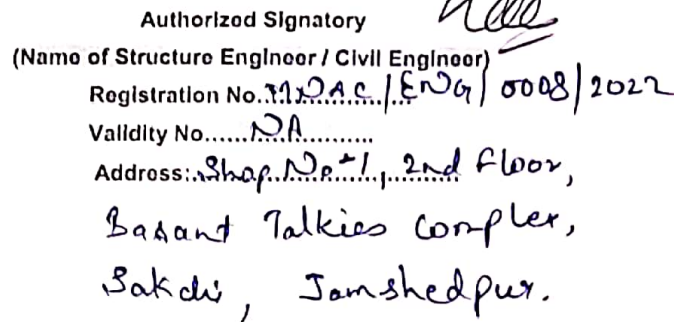 Authorized Signatory
(Name of Structure Engineer / Civil Engineer)
Registration No..MNAC/ENG/0008/2022
Validity No......NA...........
Address:.Shop.No-1, 2nd Floor,
Basant Talkies Complex,
Sakchi, Jamshedpur.